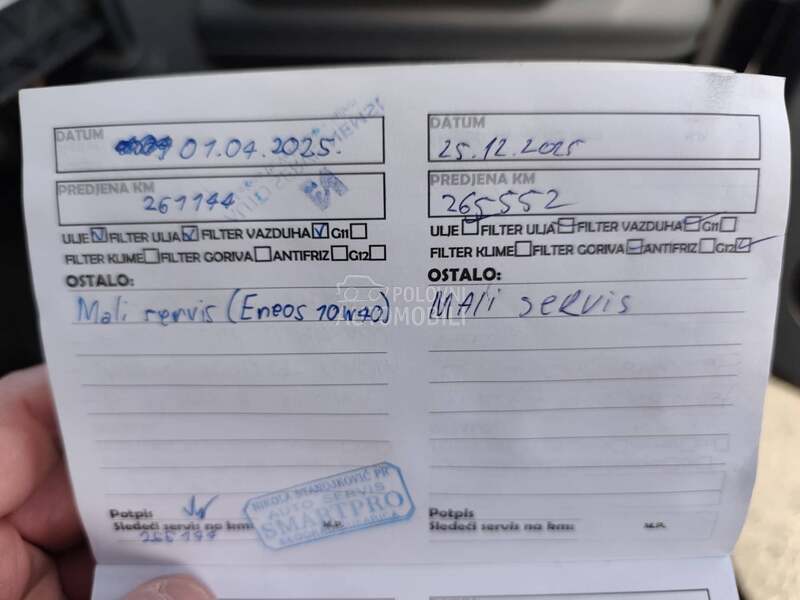 DATUM
01.04.2025.
PREDJENA KM
261144
ULJE FILTER ULJA FILTER VAZDUHA G11
FILTER KLIME FILTER GORIVA ANTIFRIZ G12
OSTALO:
Mali servis (Eneos 10w40)
NIKOLA STANOJKOVIĆ PR
AUTO SERVIS
SMARTPRO
Potpis
Sledeći servis na km: M.P.
DATUM
25.12.2025
PREDJENA KM
265552
ULJE FILTER ULJA FILTER VAZDUHA G11
FILTER KLIME FILTER GORIVA ANTIFRIZ G12
OSTALO:
MALI SERVIS
Potpis
Sledeći servis na km: M.P.
POLOVNI
AUTOMOBILI